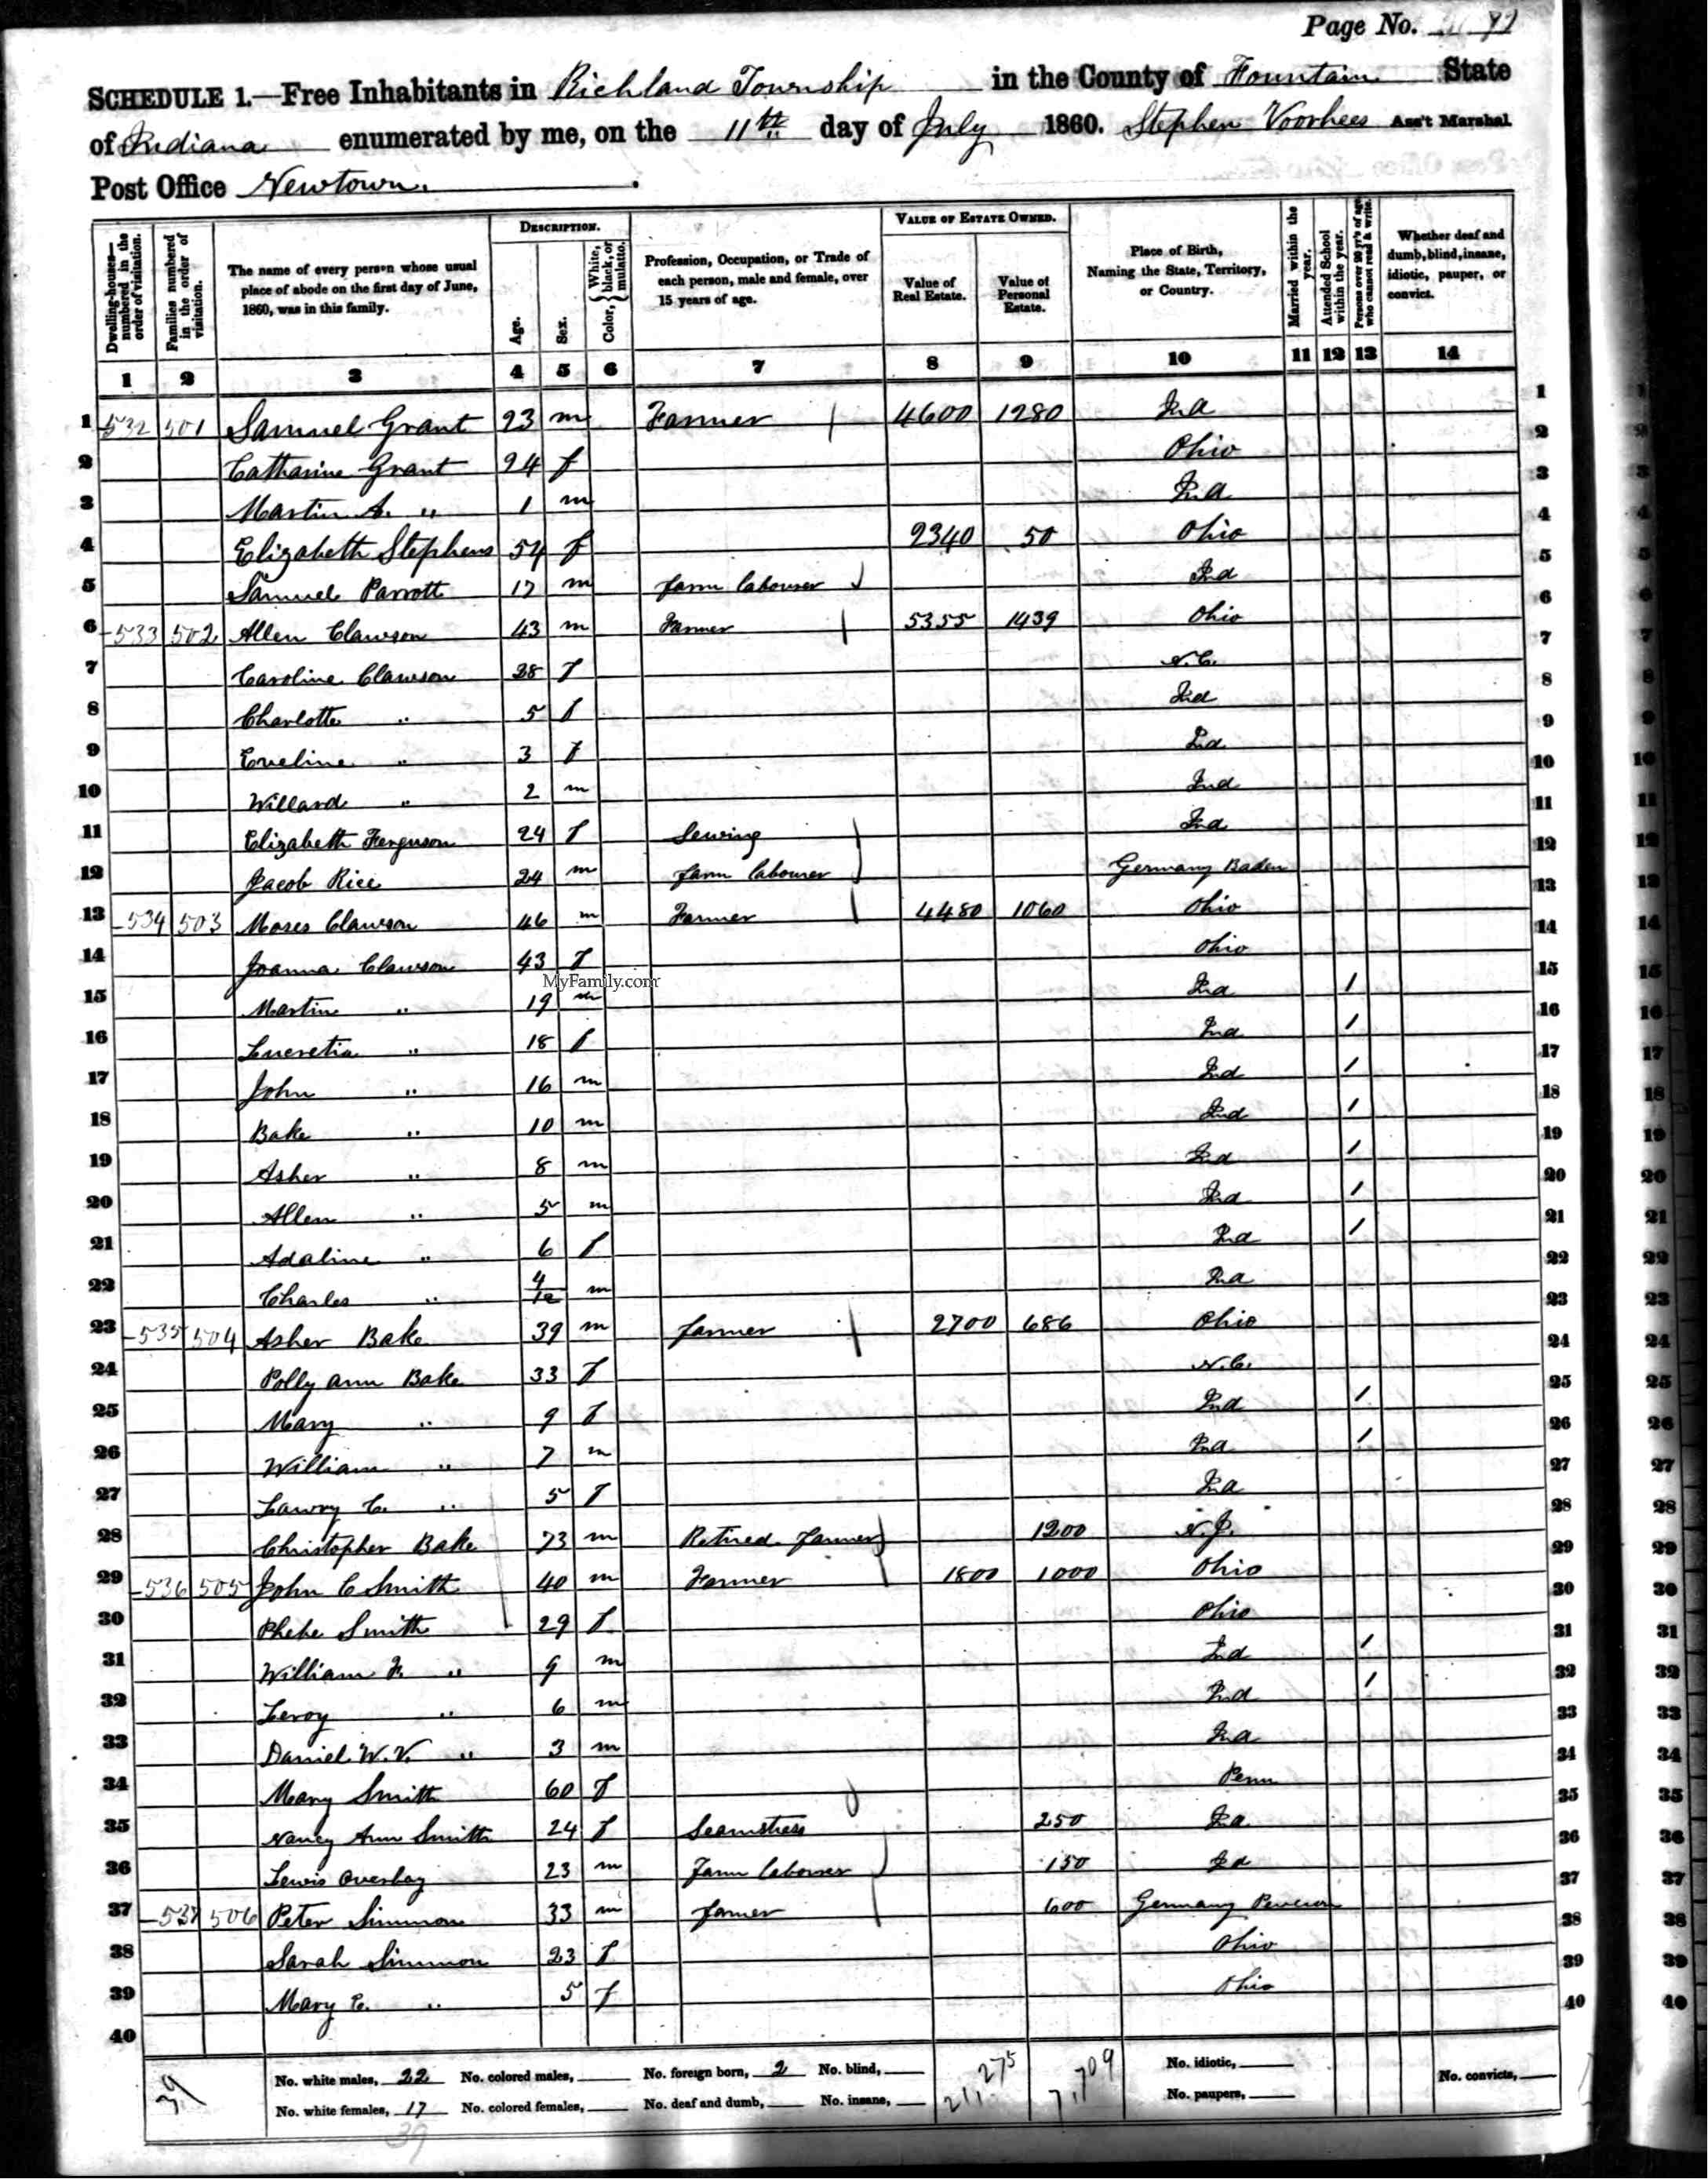 Page No.
SCHEDULE 1.—Free Inhabitants in Richland Township in the County of Fountain State
of Indiana enumerated by me, on the 11th day of July 1860. Stephen Voorhees Ass't Marshal
Post Office Newtown.
DESCRIPTION. VALUE OF ESTATE OWNED.
Dwelling-houses—numbered in the order of visitation.
Families numbered in the order of visitation.
The name of every person whose usual place of abode on the first day of June, 1860, was in this family.
Age.
Sex.
Color, { White, black, or mulatto.
Profession, Occupation, or Trade of each person, male and female, over 15 years of age.
Value of Real Estate.
Value of Personal Estate.
Place of Birth, Naming the State, Territory, or Country.
Married within the year.
Attended School within the year.
Persons over 20 y'rs of age who cannot read & write.
Whether deaf and dumb, blind, insane, idiotic, pauper, or convict.
1 2 3 4 5 6 7 8 9 10 11 12 13 14
1 532 501 Samuel Grant 23 m Farmer 4600 1280 Ind 1
2 Catharine Grant 24 f Ohio 2
3 Martin A. " 1 m Ind 3
4 Elizabeth Stephens 54 f 2340 50 Ohio 4
5 Samuel Parrott 17 m farm labourer Ind 5
6 533 502 Allen Clawson 43 m Farmer 5355 1439 Ohio 6
7 Caroline Clawson 28 f N.C. 7
8 Charlotte " 5 f Ind 8
9 Eveline " 3 f Ind 9
10 Willard " 2 m Ind 10
11 Elizabeth Ferguson 24 f Sewing Ind 11
12 Jacob Rice 24 m farm labourer Germany Baden 12
13 534 503 Moses Clawson 46 m Farmer 4480 1060 Ohio 13
14 Joanna Clawson 43 f Ohio 14
MyFamily.com
15 Martin " 19 m Ind / 15
16 Lucretia " 18 f Ind / 16
17 John " 16 m Ind / 17
18 Bake " 10 m Ind / 18
19 Asher " 8 m Ind / 19
20 Allen " 5 m Ind / 20
21 Adaline " 6 f Ind / 21
22 Charles " 4/12 m Ind 22
23 535 504 Asher Bake 39 m farmer 2700 686 Ohio 23
24 Polly Ann Bake 33 f N.C. 24
25 Mary " 9 f Ind / 25
26 William " 7 m Ind / 26
27 C. " 5 f Ind 27
28 Christopher Bake 73 m Retired farmer 1200 N.J. 28
29 536 505 John C Smith 40 m Farmer 1800 1000 Ohio 29
30 Phebe Smith 29 f Ohio 30
31 William F. " 9 m Ind / 31
32 Leroy " 6 m Ind / 32
33 Daniel W.V. " 3 m Ind 33
34 Mary Smith 60 f Penn 34
35 Nancy Ann Smith 24 f Seamstress 250 Ind 35
36 Lewis Overbay 23 m Farm labourer 150 Ind 36
37 537 506 Peter Simmon 33 m farmer 600 Germany 37
38 Sarah Simmon 23 f Ohio 38
39 Mary E. " 5 f Ohio 39
40 40
39
No. white males, 22 No. colored males, No. foreign born, 2 No. blind, No. idiotic, No. convicts,
No. white females, 17 No. colored females, No. deaf and dumb, No. insane, No. paupers,
21,275 7,709
39